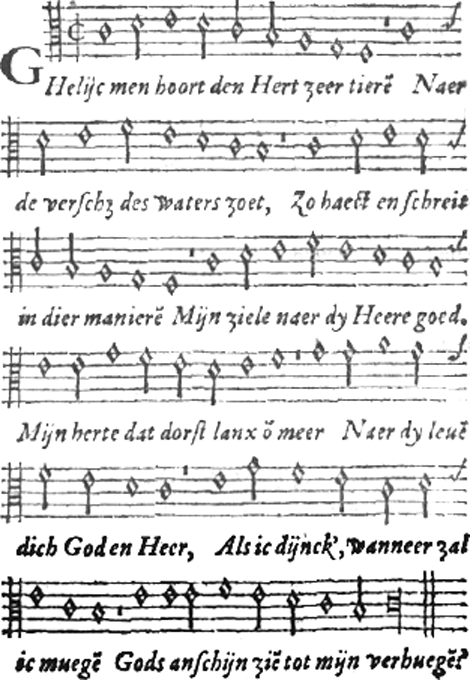 GHelijc men hoort den Hert zeer tierē Naer
de verschz des waters zoet, Zo haest en schreit
in dier manierē Mijn ziele naer dy Heere goed.
Mijn herte dat dorst lanx ō meer Naer dy leuē
dich God en Heer, Als ic dijnck, wanneer zal
ic muegē Gods anschijn ziē tot mijn verhuegē?